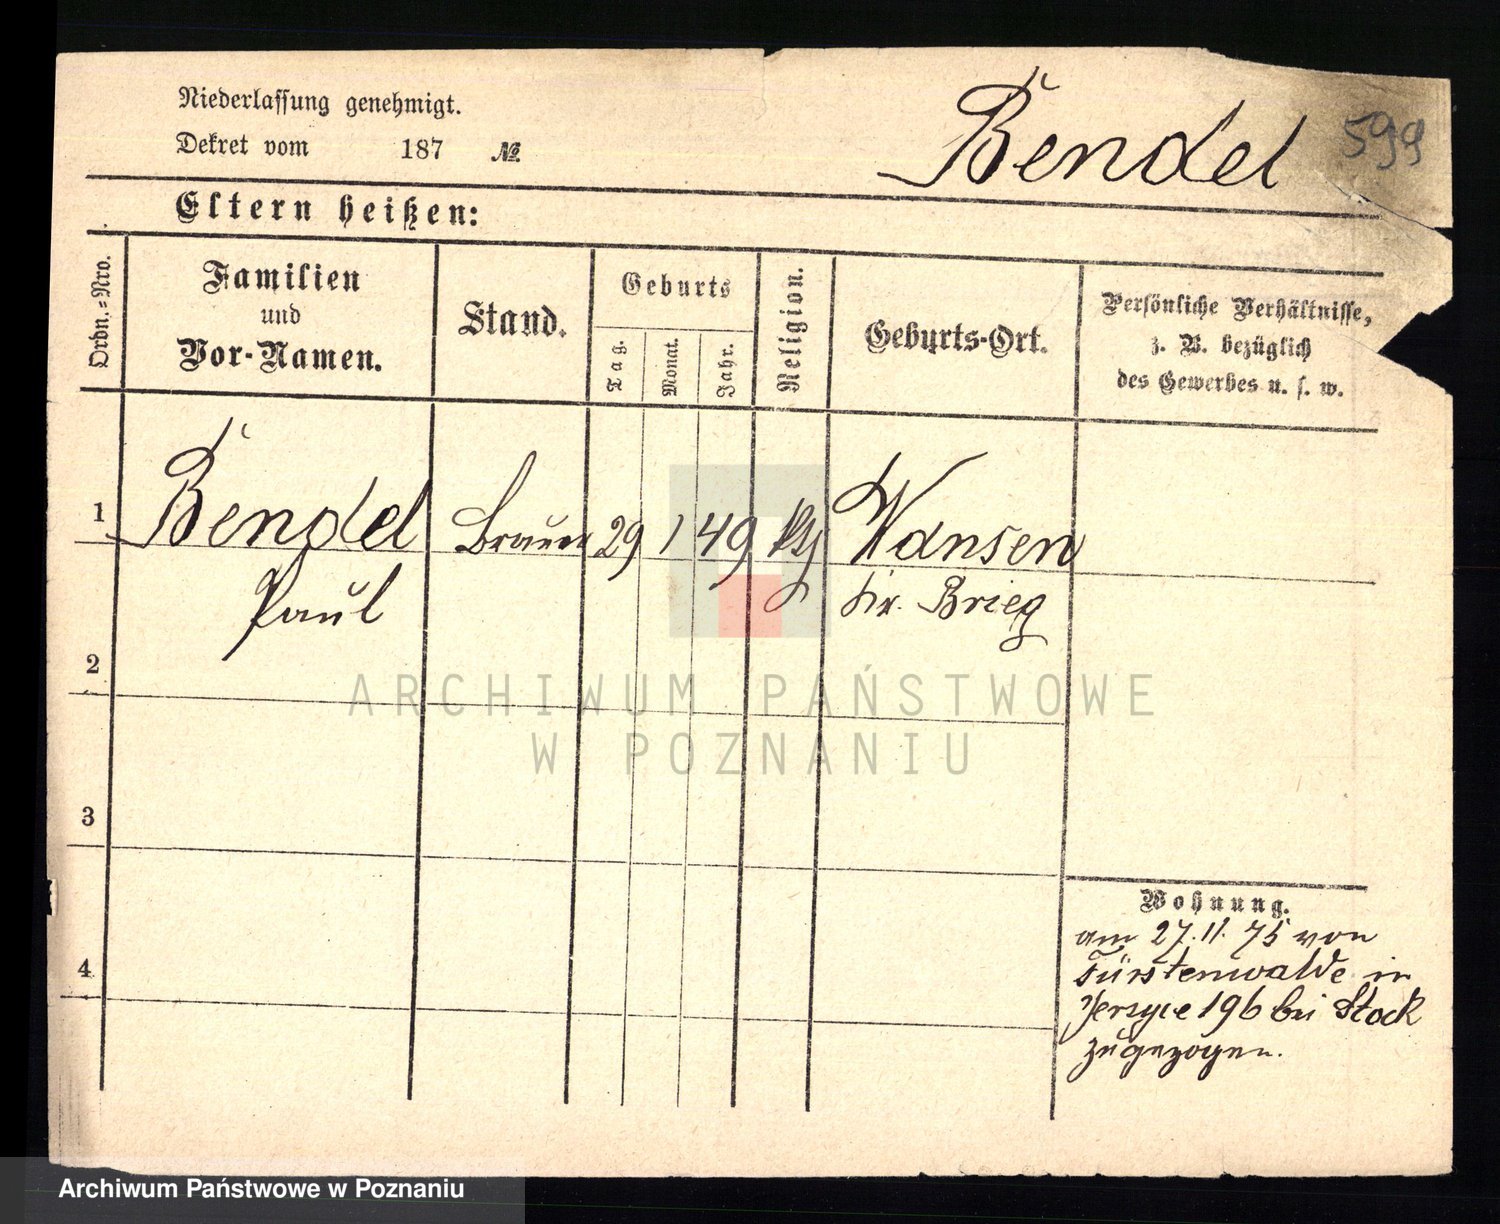 Niederlassung genehmigt.
Dekret vom 187 №
Bendel
599
Eltern heißen:
Ordn.-Nro.
Familien
und
Vor-Namen.
Stand.
Geburts
Tag.
Monat.
Jahr.
Religion.
Geburts-Ort.
Persönliche Verhältnisse,
z. B. bezüglich
des Gewerbes u. s. w.
1 Bendel Brauer 29 1 49 kth Wansen
Paul Kr. Brieg
2
3
4
Wohnung.
am 27.11.75 von
Fürstenwalde in
Jersyce 196 bei Stock
zugezogen.
ARCHIWUM PAŃSTWOWE
W POZNANIU
Archiwum Państwowe w Poznaniu